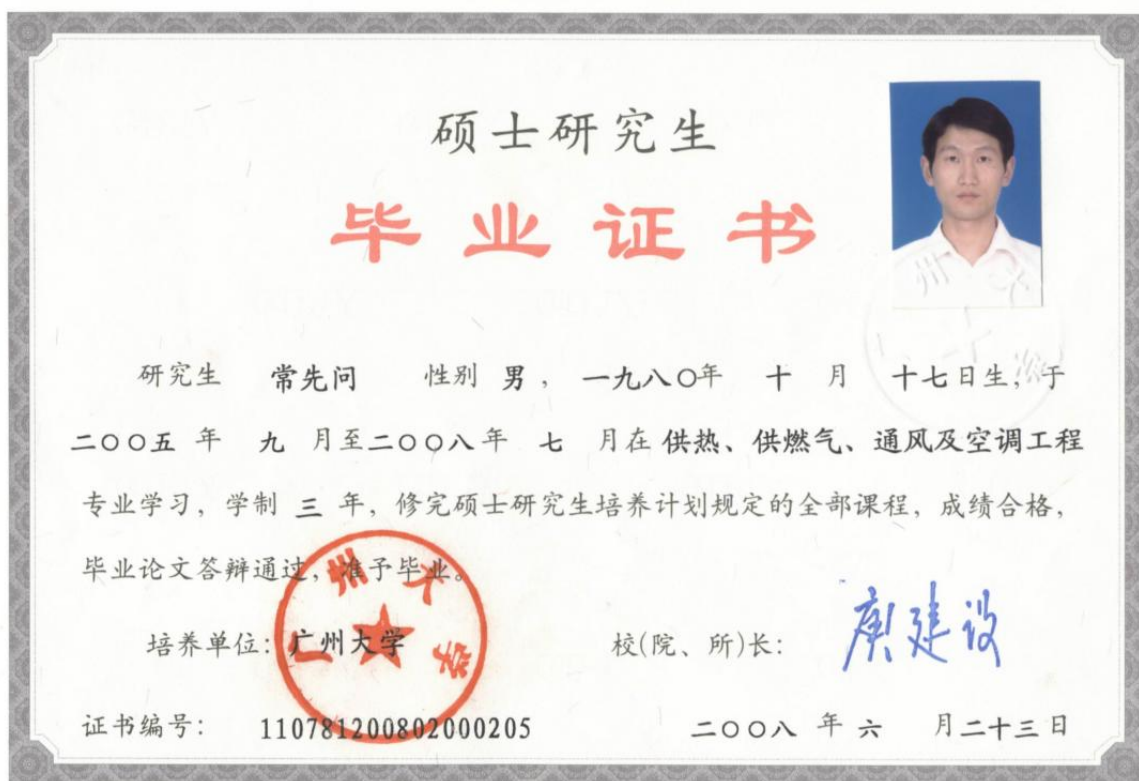 硕士研究生
毕业证书
研究生 常先问 性别 男，一九八〇年 十 月 十七日生，于
二〇〇五 年 九 月至二〇〇八 年 七 月在 供热、供燃气、通风及空调工程
专业学习，学制 三 年，修完硕士研究生培养计划规定的全部课程，成绩合格，
毕业论文答辩通过，准予毕业。
广州大学
培养单位：广州大学
校(院、所)长：
庾建设
证书编号： 110781200802000205
二〇〇八 年 六 月二十三日